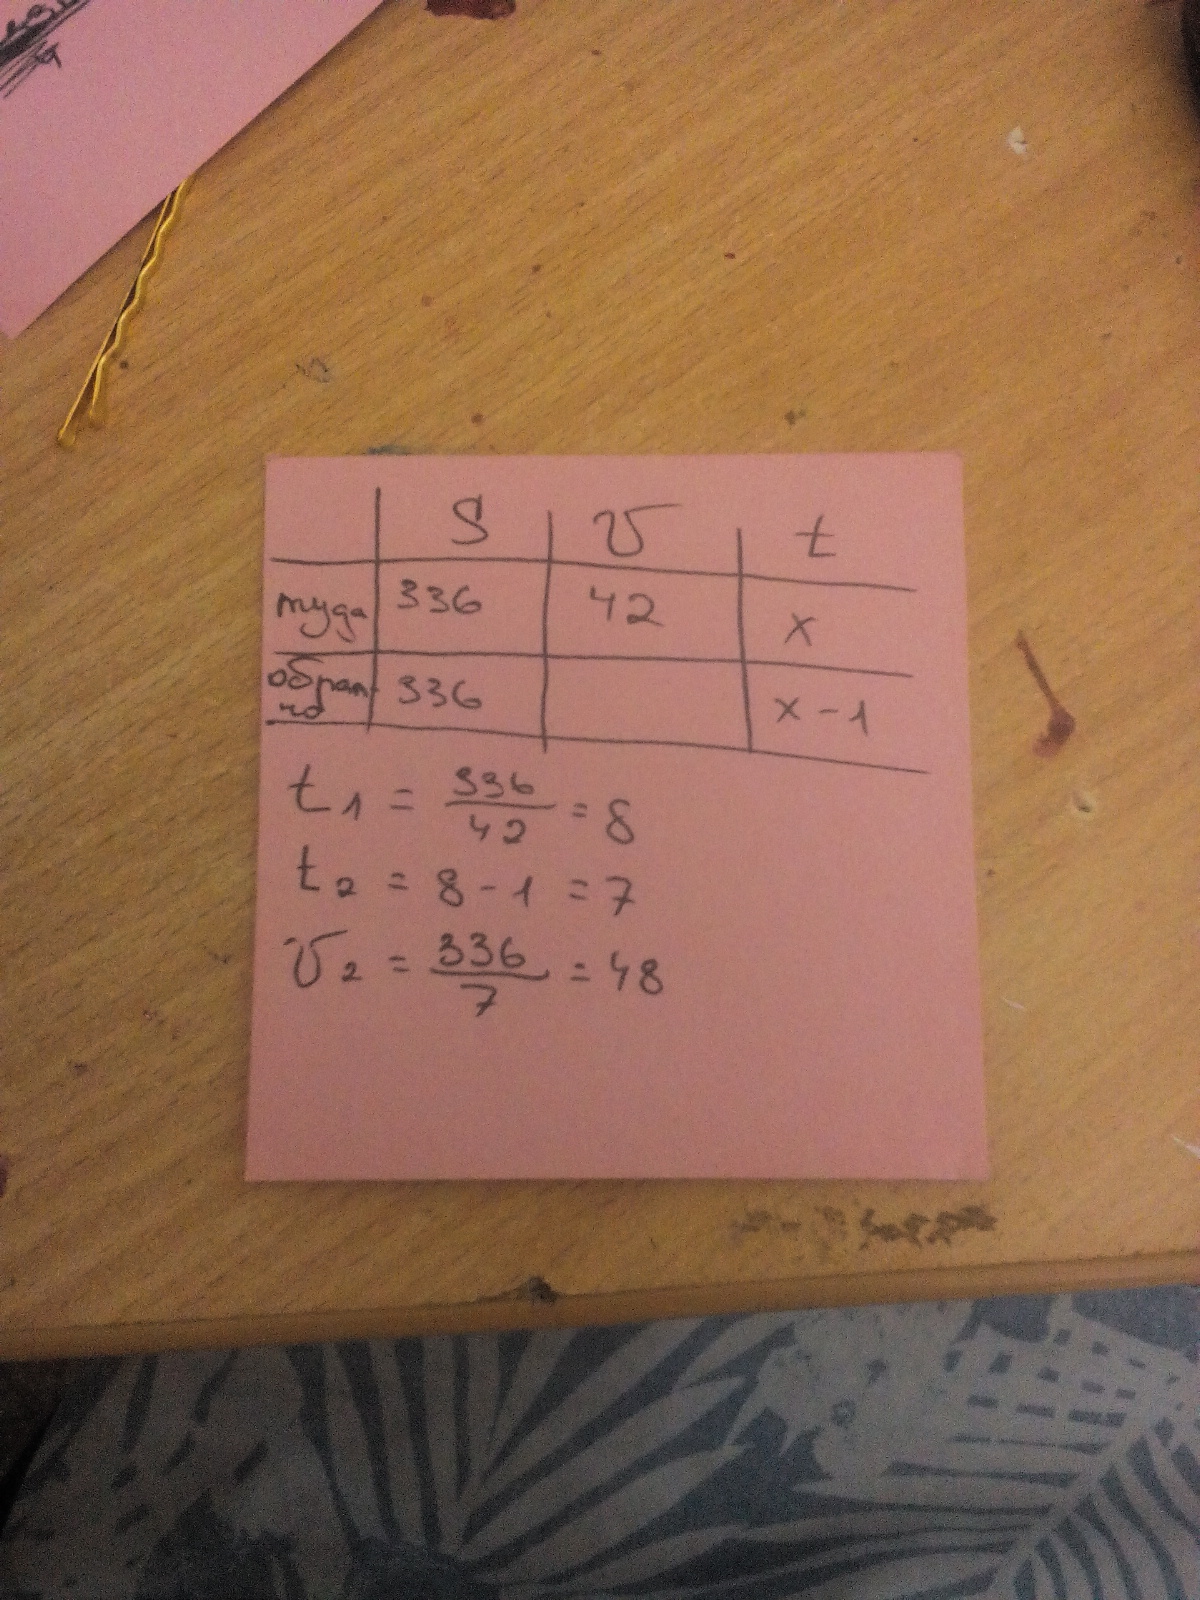 S v t
туда 336 42 x
обрат-
но 336 x - 1
t₁ = 336/42 = 8
t₂ = 8 - 1 = 7
v₂ = 336/7 = 48